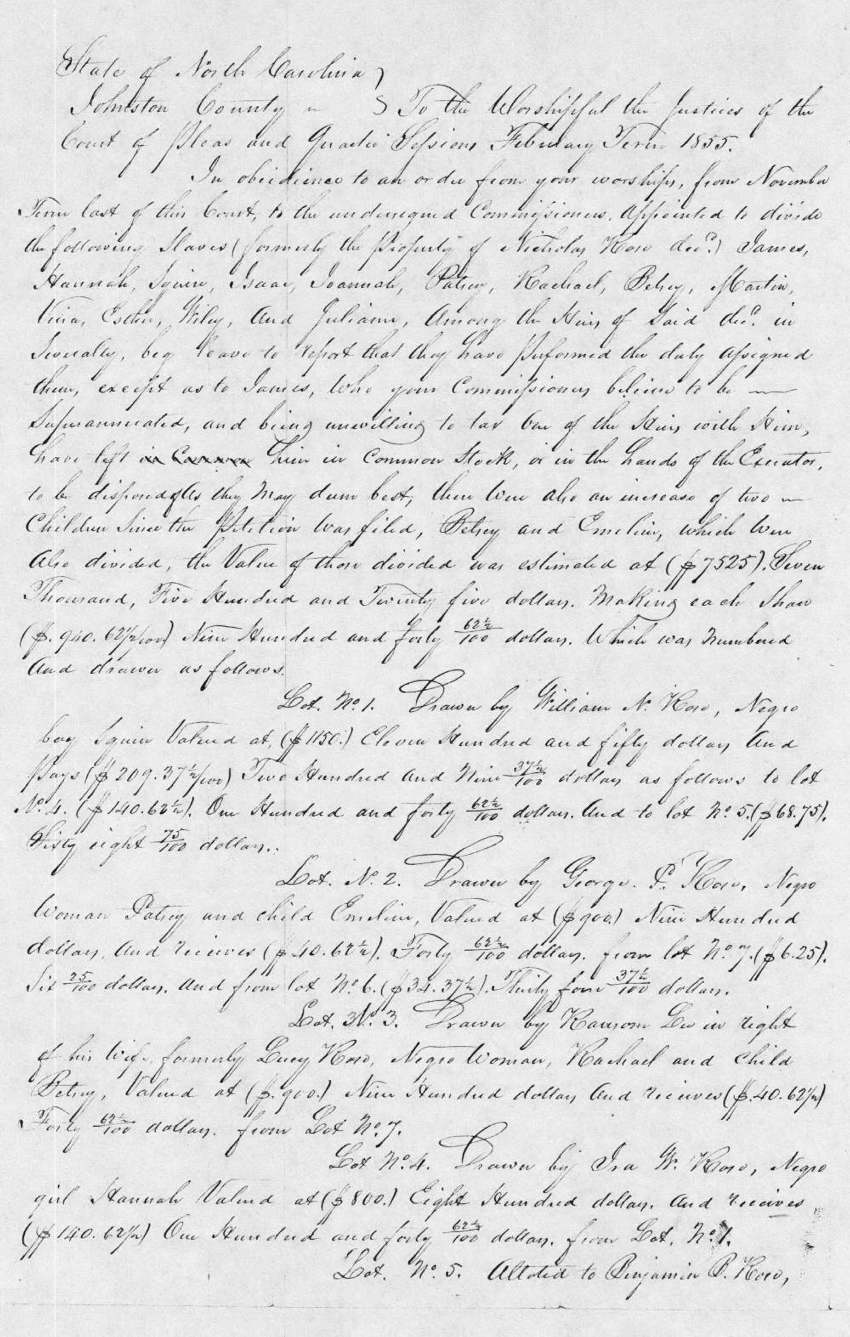 State of North Carolina }
Johnston County ~ } To the Worshipful the Justices of the
Court of Pleas and Quarter Sessions February Term 1855.
In obedience to an order from your worships, from November
Term last of this Court, to the undersigned Commissioners, appointed to divide
the following Slaves (formerly the Property of Nicholas Horn decd.) James,
Hannah, Squire, Isaac, Joannah, Patsey, Rachael, Betsey, Martin,
Vina, Esther, Wiley, And Juliann, Among the Heirs of Said decd. in
Severalty, beg Leave to report that they have performed the duty assigned
them, except as to James, Who your Commissioners believe to be —
Superannuated, and being unwilling to tax One of the Heirs with Him,
have left in Common him in Common Stock, or in the hands of the Executor,
to be disposed of As they May deem best, there were also an increase of two ~
Children Since the Petition was filed, Betsey and Emeline, which were
Also divided, the Value of those divided was estimated at ($7525). Seven
Thousand, Five Hundred and Twenty five dollars. Making each Share
($.940.62½/100) Nine Hundred and forty 62½/100 dollars. Which was Numbered
And drawn as follows.
Lot. No. 1. Drawn by William N. Horn, Negro
boy Squire Valued at, ($1150.) Eleven Hundred and fifty dollars And
Pays ($209.37½/100) Two Hundred And Nine 37½/100 dollars as follows to lot
No. 4. ($140.62½). One Hundred and forty 62½/100 dollars. And to lot No. 5. ($68.75).
Sixty eight 75/100 dollars..
Lot. No. 2. Drawn by George. P. Horn, Negro
Woman Patsey and child Emeline, Valued at ($900.) Nine Hundred
dollars, And receives ($40.62½). Forty 62½/100 dollars. from lot No. 7. ($6.25).
Six 25/100 dollars. And from lot No. 6. ($34.37½). Thirty four 37½/100 dollars.
Lot. No. 3. Drawn by Ransom Lee in right
of his Wife, formerly Lucy Horn, Negro Woman, Rachael and Child
Betsey, Valued at ($.900.) Nine Hundred dollars And receives ($.40.62½)
Forty 62½/100 dollars. from Lot No. 7.
Lot No. 4. Drawn by Ira W. Horn, Negro
girl Hannah Valued at ($800.) Eight Hundred dollars. And receives
($140.62½) One Hundred and forty 62½/100 dollars. from Lot. No. 1.
Lot. No. 5. Altoted to Benjamin B. Horn,